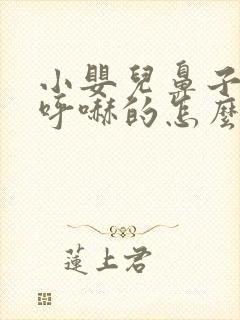 小嬰兒鼻子
呼嚇的怎麼
蓮上君